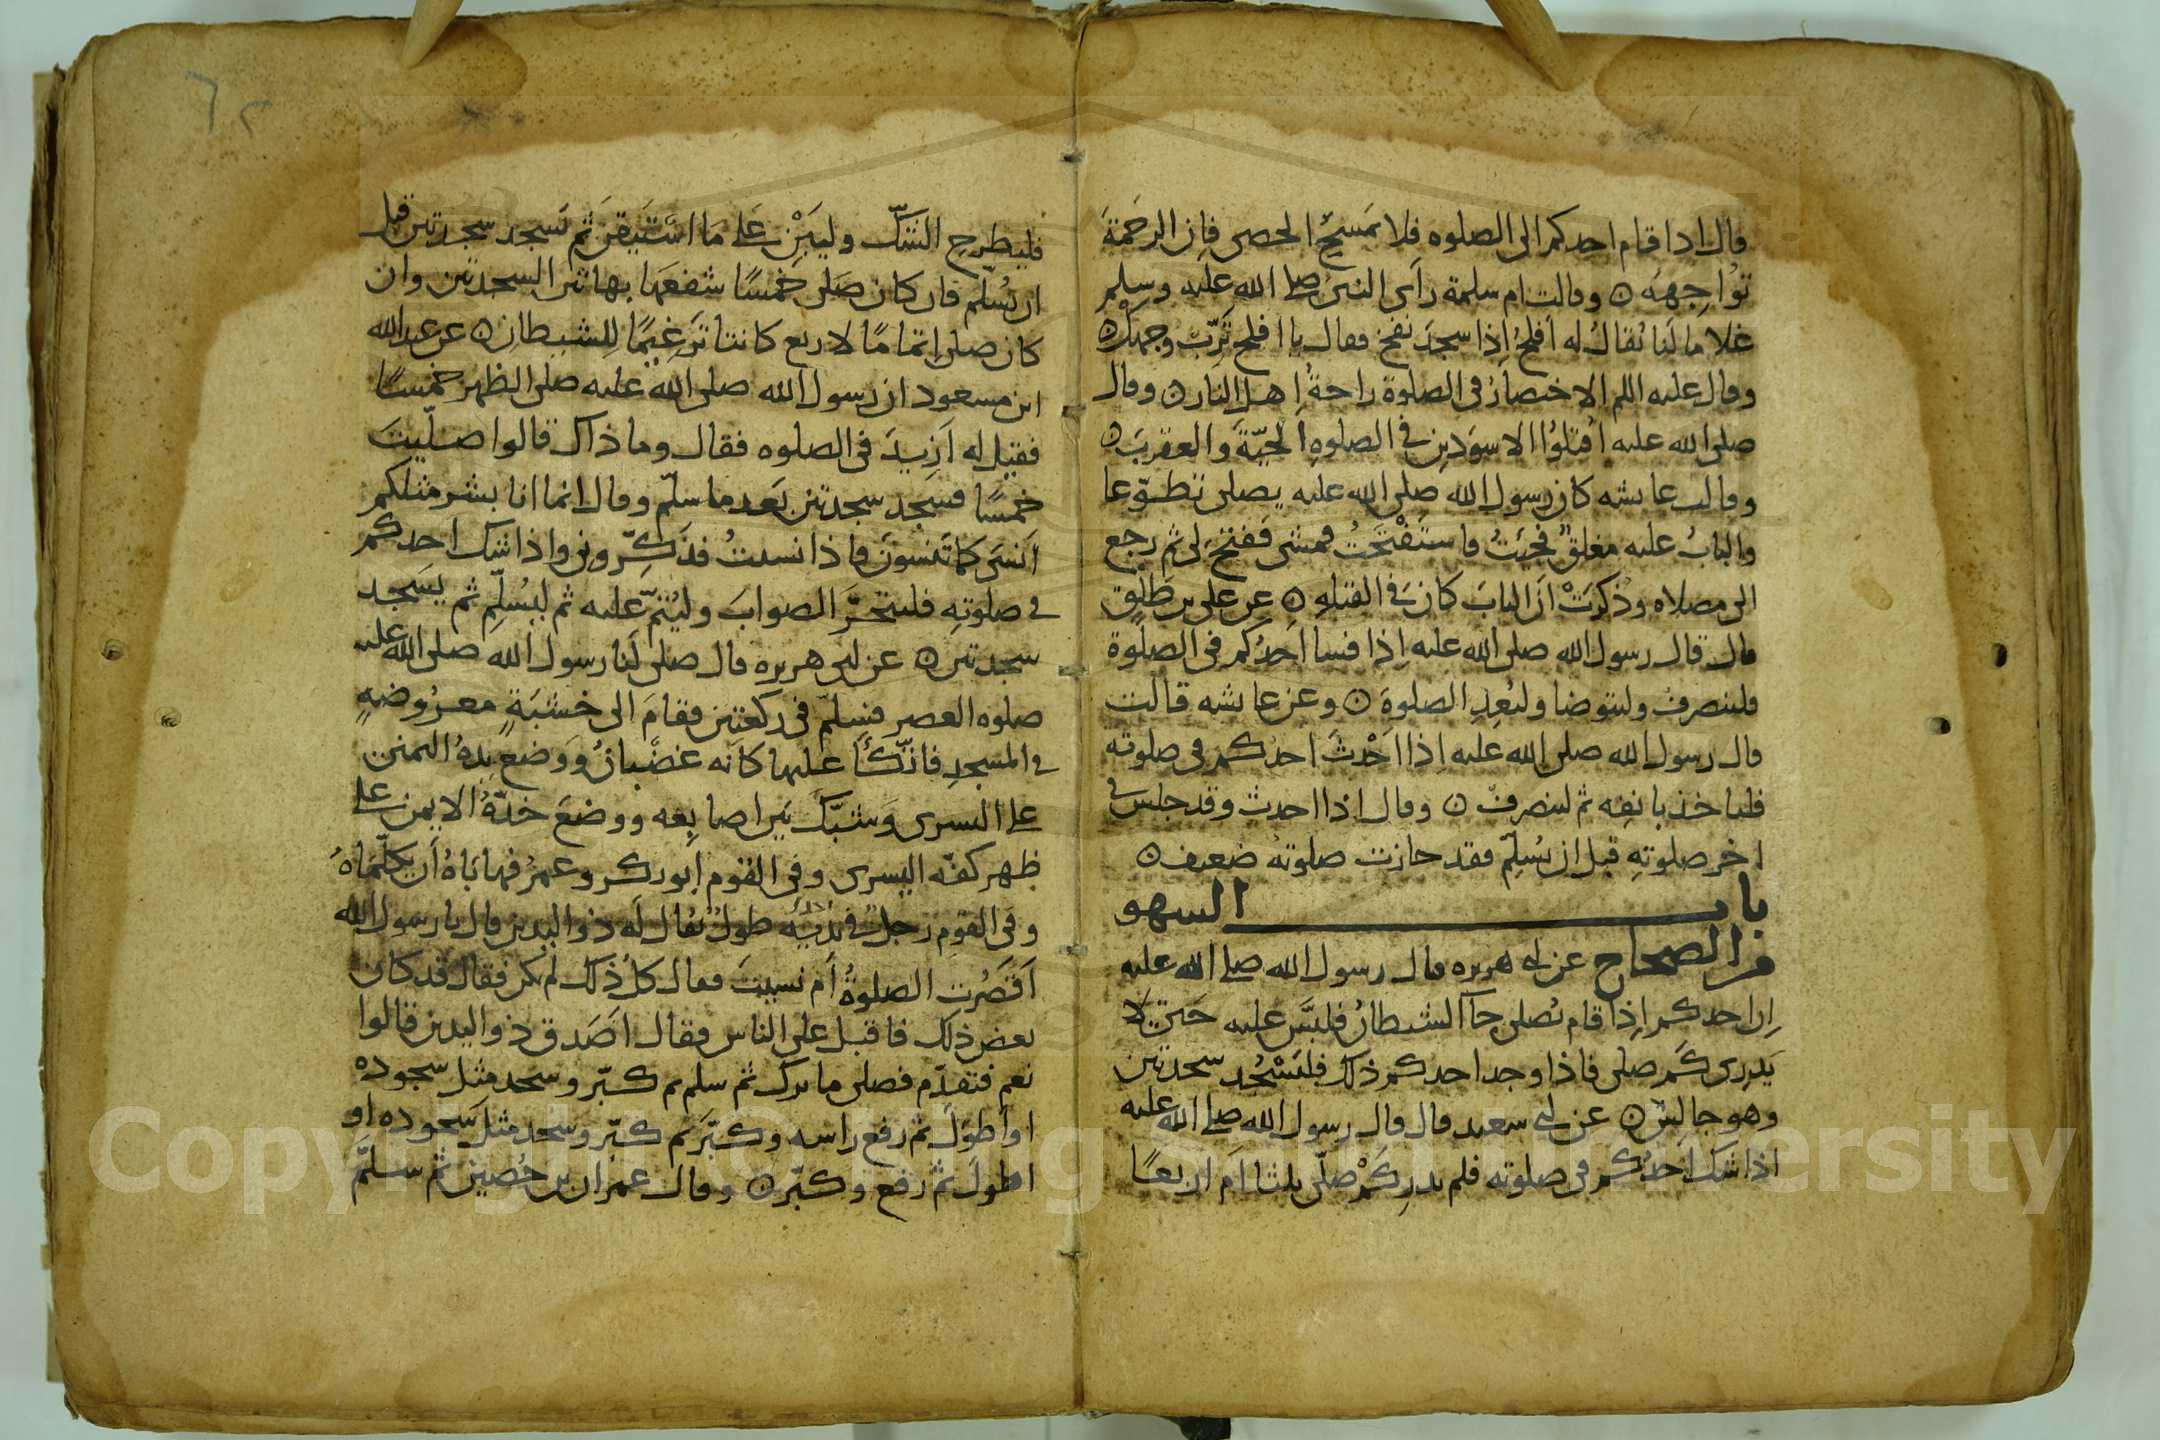 قال اذا قام احدكم الى الصلوه فلا تمسح الحصى فان الرحمة
تواجهه ه وقالت ام سلمة رأى النبى صلى الله عليه وسلم
غلاما لنا يقال له افلح اذا سجد نفخ فقال يا افلح ترّب وجهك ه
وقال عليه اللم الاختصار فى الصلوة راحة اهل النار ه وقال
صلى الله عليه اقتلوا الاسودين فى الصلوه الحيّة والعقرب ه
وقالت عايشه كان رسول الله صلى الله عليه يصلى تطوّعا
والباب عليه مغلق فجئت فاستفتحت فمشى ففتح لى ثم رجع
الى مصلاه وذكرت ان الباب كان فى القبله ه عن على بن طلق
قال قال رسول الله صلى الله عليه اذا فسا احدكم فى الصلوة
فلينصرف وليتوضا وليعد الصلوة ه وعن عايشه قالت
قال رسول الله صلى الله عليه اذا احدث احدكم فى صلوته
فلياخذ بانفه ثم لينصرف ه وقال اذا احدث وقد جلس فى
اخر صلوته قبل ان يسلّم فقد جازت صلوته ضعيف ه
باب السهو
من الصحاح عن ابى هريره قال رسول الله صلى الله عليه
ان احدكم اذا قام يصلى جآ الشيطان فلبّس عليه حتى لا
يدرى كم صلى فاذا وجد احدكم ذلك فليسجد سجدتين
وهو جالس ه عن ابى سعيد قال قال رسول الله صلى الله عليه
اذا شك احدكم فى صلوته فلم يدر كم صلّى ثلثا ام اربعًا
فليطرح الشكّ وليبن على ما استيقن ثم تسجد سجدتين قبل
ان يسلّم فان كان صلى خمسًا شفعها بهاتين السجدتين وان
كان صلى اتمامًا لاربع كانتا ترغيمًا للشيطان ه عن عبد الله
ابن مسعود ان رسول الله صلى الله عليه صلى الظهر خمسًا
فقيل له ازيد فى الصلوه فقال وما ذاك قالوا صلّيت
خمسًا فسجد سجدتين بعد ما سلّم وقال انما انا بشر مثلكم
انسى كما تنسون فاذا نسيت فذكّرونى واذا شك احدكم
فى صلوته فليتحرّ الصواب وليتمّ عليه ثم ليسلّم ثم يسجد
سجدتين ه عن ابى هريره قال صلى لنا رسول الله صلى الله عليه
صلوه العصر فسلّم فى ركعتين فقام الى خشبة معروضة
فى المسجد فاتّكأ عليها كانه غضبان ووضع يده اليمنى
على اليسرى وشبّك بين اصابعه ووضع خدّه الايمن على
ظهر كفّه اليسرى وفى القوم ابو بكر وعمر فهاباه ان يكلّماه
وفى القوم رجل فى يديه طول يقال له ذو اليدين قال يا رسول الله
اقصرت الصلوة ام نسيت فقال كل ذلك لم يكن فقال قد كان
بعض ذلك فاقبل على الناس فقال اصدق ذو اليدين قالوا
نعم فتقدّم فصلى ما ترك ثم سلم ثم كبّر وسجد مثل سجوده
او اطول ثم رفع راسه وكبّر ثم كبّر وسجد مثل سجوده او
اطول ثم رفع وكبّر ه وقال عمران بن حصين ثم سلّم
٦٢
Copyright © King Saud University